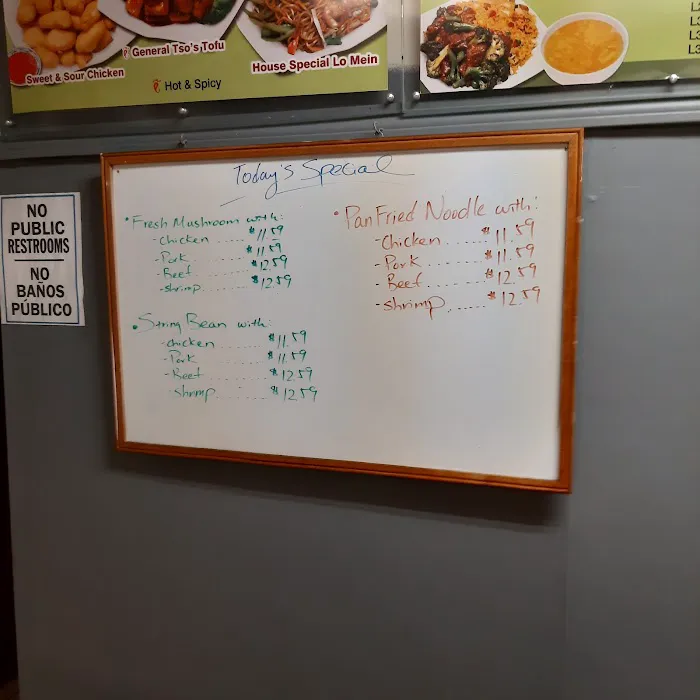 General Tso's Tofu
Sweet & Sour Chicken
House Special Lo Mein
Hot & Spicy
NO
PUBLIC
RESTROOMS
NO
BAÑOS
PÚBLICO
Today's Special
• Fresh Mushroom with:
- Chicken ...... $11.59
- Pork ...... $11.59
- Beef ...... $12.59
- shrimp ...... $12.59
• String Bean with:
- chicken ...... $11.59
- Pork ...... $11.59
- Beef ...... $12.59
shrimp ...... $12.59
• Pan Fried Noodle with:
- Chicken ...... $11.59
- Pork ...... $11.59
- Beef ...... $12.59
- shrimp ...... $12.59